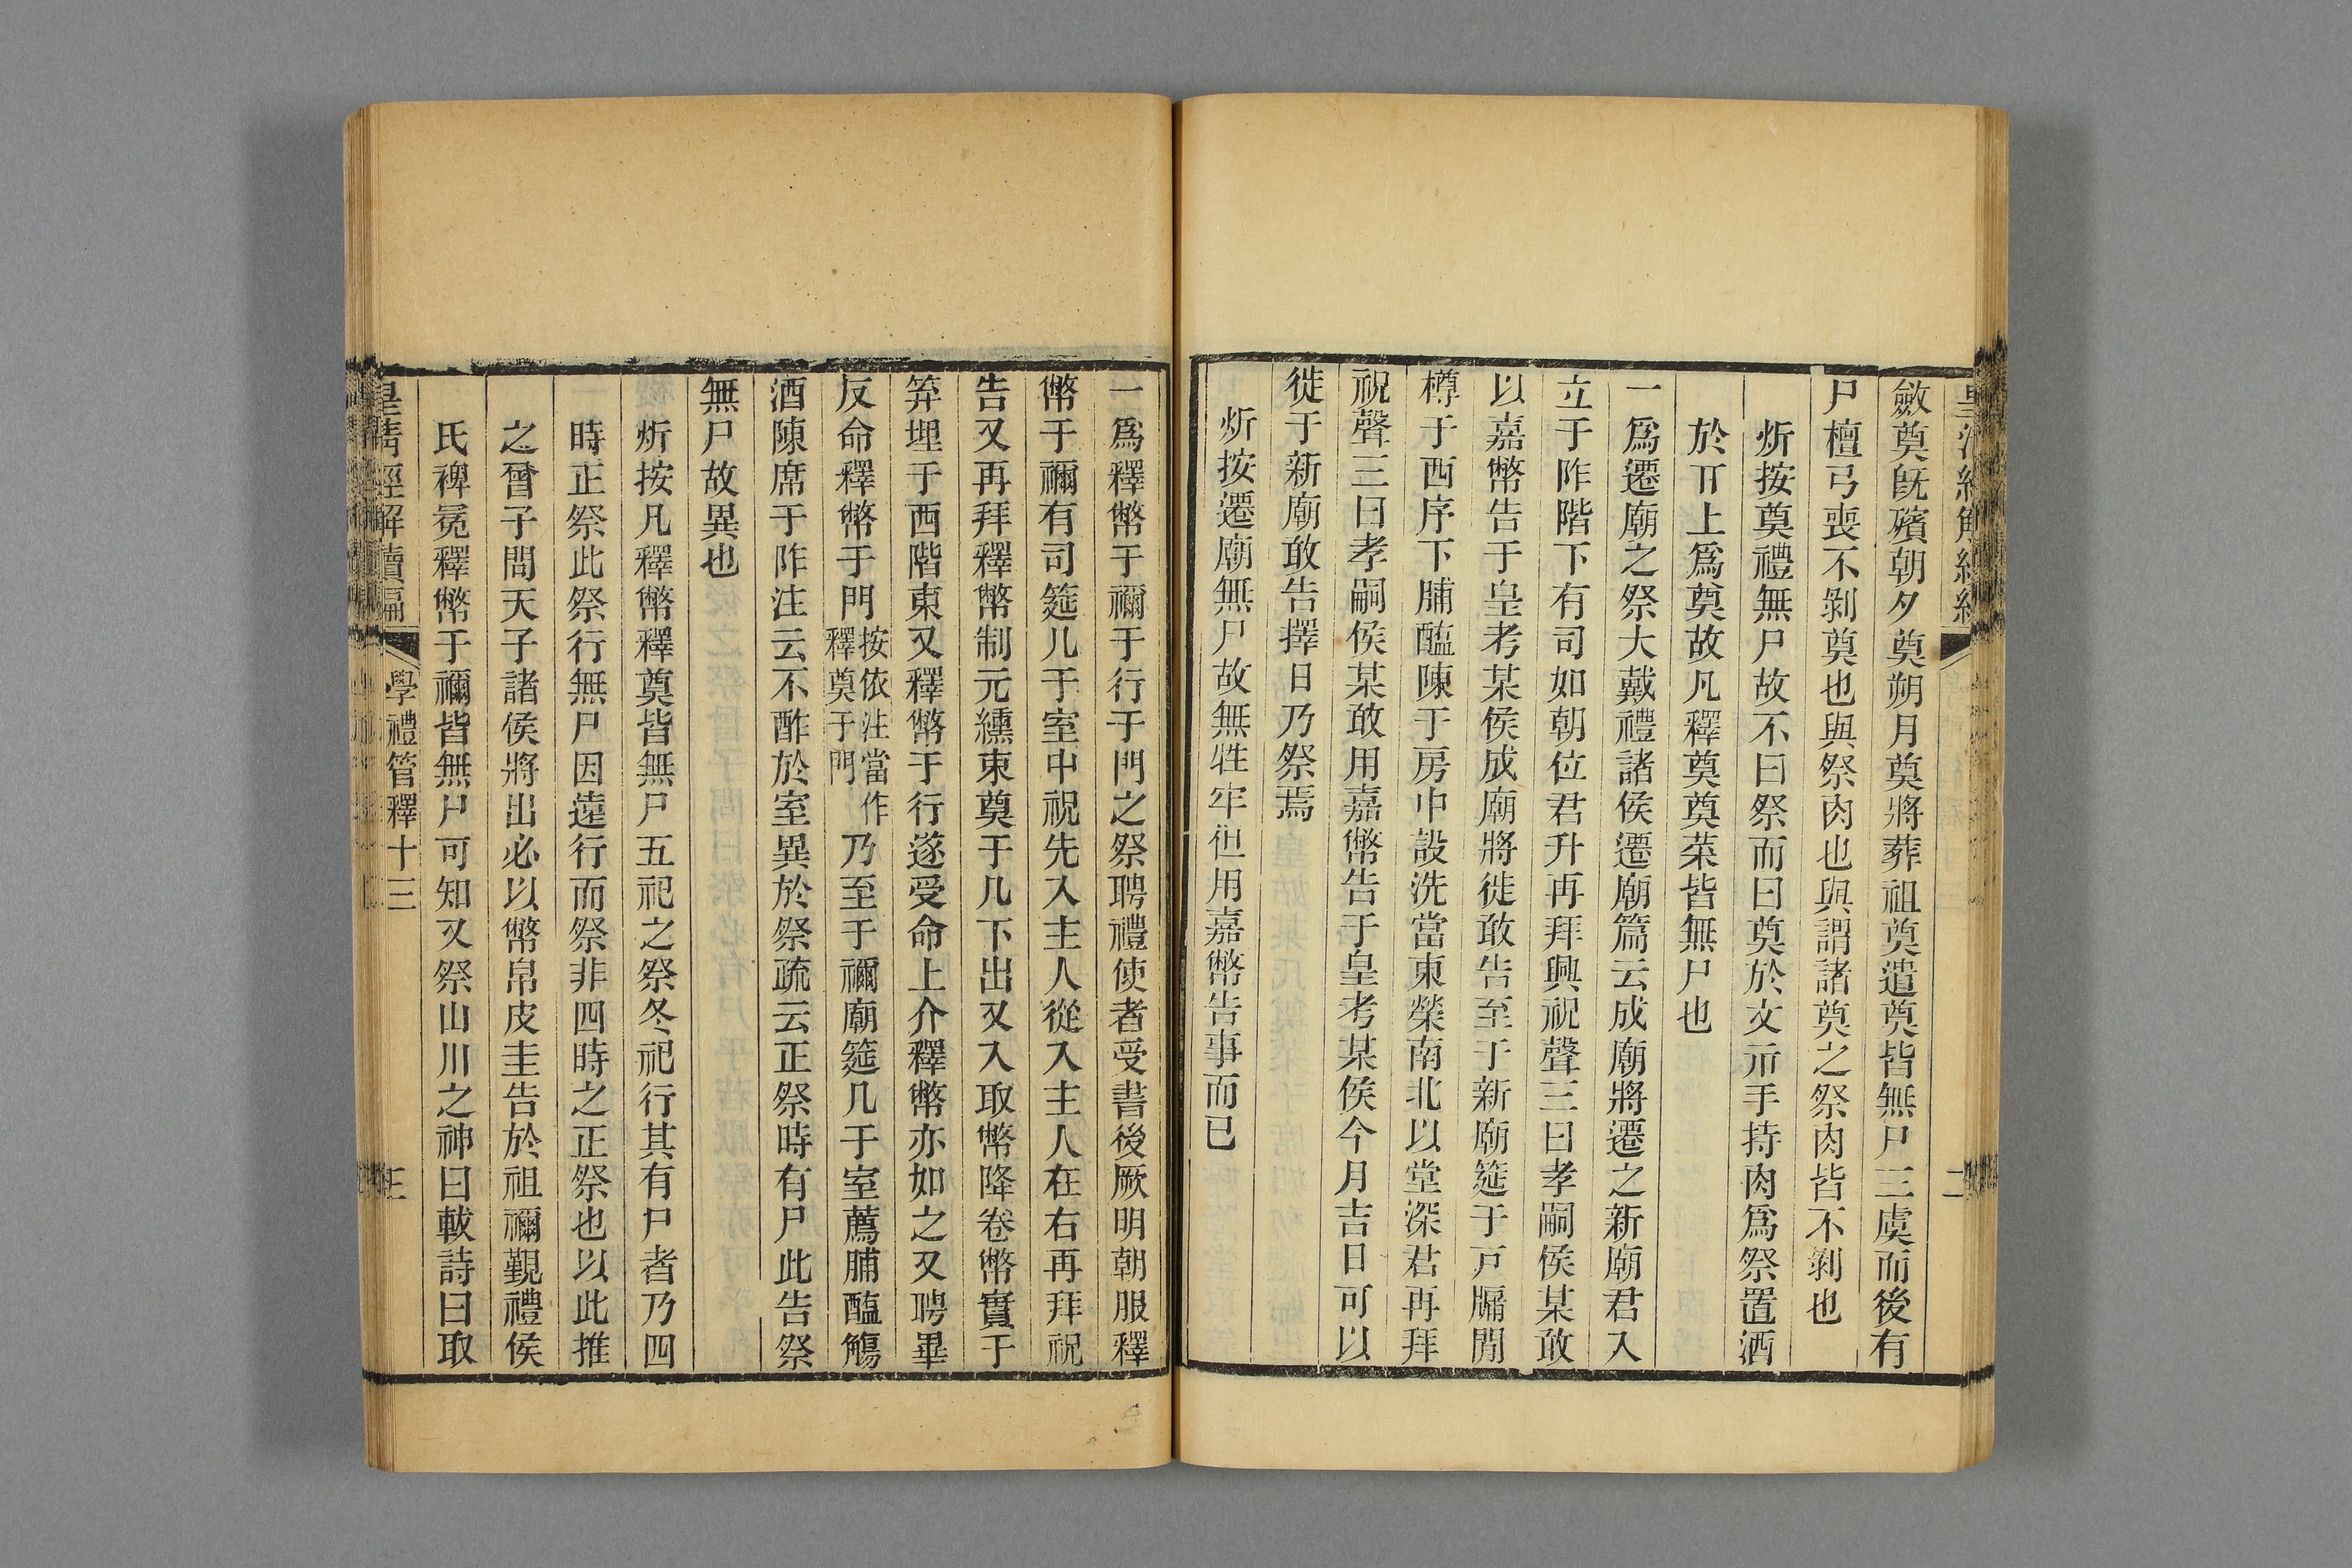 斂奠旣殯朝夕奠朔月奠將葬祖奠遣奠皆無尸三虞而後有
尸檀弓喪不剝奠也與祭肉也與謂諸奠之祭肉皆不剝也
炘按奠禮無尸故不曰祭而曰奠於文示手持肉爲祭置酒
於丌上爲奠故凡釋奠奠菜皆無尸也
一爲遷廟之祭大戴禮諸侯遷廟篇云成廟將遷之新廟君入
立于阼階下有司如朝位君升再拜興祝聲三曰孝嗣侯某敢
以嘉幣告于皇考某侯成廟將徙敢告至于新廟筵于戸牖閒
樽于西序下脯醢陳于房中設洗當東榮南北以堂深君再拜
祝聲三曰孝嗣侯某敢用嘉幣告于皇考某侯今月吉日可以
徙于新廟敢告擇日乃祭焉
炘按遷廟無尸故無牲牢但用嘉幣告事而已
一爲釋幣于禰于行于門之祭聘禮使者受書後厥明朝服釋
幣于禰有司筵几于室中祝先入主人從入主人在右再拜祝
告又再拜釋幣制元纁束奠于几下出又入取幣降卷幣實于
笲埋于西階東又釋幣于行遂受命上介釋幣亦如之又聘畢
反命釋幣于門按依注當作釋奠于門乃至于禰廟筵几于室薦脯醢觴
酒陳席于阼注云不酢於室異於祭疏云正祭時有尸此告祭
無尸故異也
炘按凡釋幣釋奠皆無尸五祀之祭冬祀行其有尸者乃四
時正祭此祭行無尸因遠行而祭非四時之正祭也以此推
之曾子問天子諸侯將出必以幣帛皮圭告於祖禰覲禮侯
氏裨冕釋幣于禰皆無尸可知又祭山川之神曰軷詩曰取
皇清經解續編　學禮管釋十三